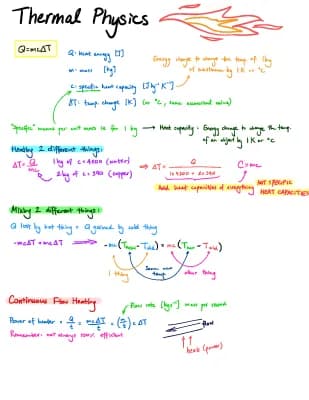 Thermal Physics
Q=mcΔT
Q: heat energy [J]
m: mass [kg]
c: specific heat capacity [J kg⁻¹ K⁻¹]
ΔT: temp. change [K] (or °C, same numerical value)
Energy change to change the temp. of 1kg
of substance by 1K or °C
"Specific" means per unit mass ie for 1 kg → Heat capacity: Energy change to change the temp.
of an object by 1K or °C
Heating 2 different things:
ΔT = Q/mc
1kg of c=4200 (water)
2kg of c=390 (copper)
⇒ ΔT = Q/(1×4200+2×390)
C=mc
Add heat capacities of everything
NOT SPECIFIC
HEAT CAPACITIES
Mixing 2 different things:
Q lost by hot thing = Q gained by cold thing
-mcΔT = mcΔT ⇒ -mc(Tnew-Told) = mc(Tnew-Told)
1 thing
Same new
temp.
other thing
Continuous Flow Heating
Flow rate [kgs⁻¹] mass per second
Power of heater = Q/t = mcΔT/t = (m/t)cΔT
Remember: not always 100% efficient
flow
heat (power)